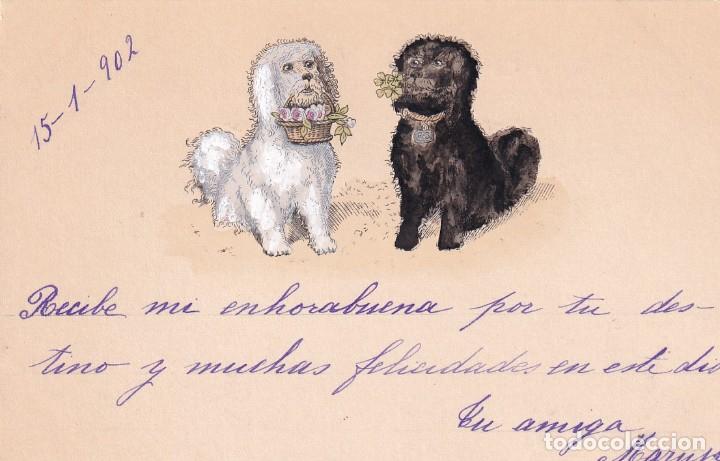 15-1-902
Recibe mi enhorabuena por tu des-
tino y muchas felicidades en este dia
Tu amiga
todocoleccion
todocoleccion.net